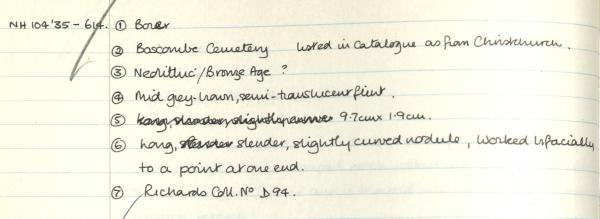 NH 104'35 - 614. ① Borer
② Boscombe Cemetery listed in Catalogue as from Christchurch.
③ Neolithic/Bronze Age ?
④ Mid grey-brown, semi-translucent flint.
⑤ long, slender, slightly curved 9.7cm x 1.9cm.
⑥ Long, slender slender, slightly curved nodule, worked bifacially
to a point at one end.
⑦ Richards Coll. No D94.